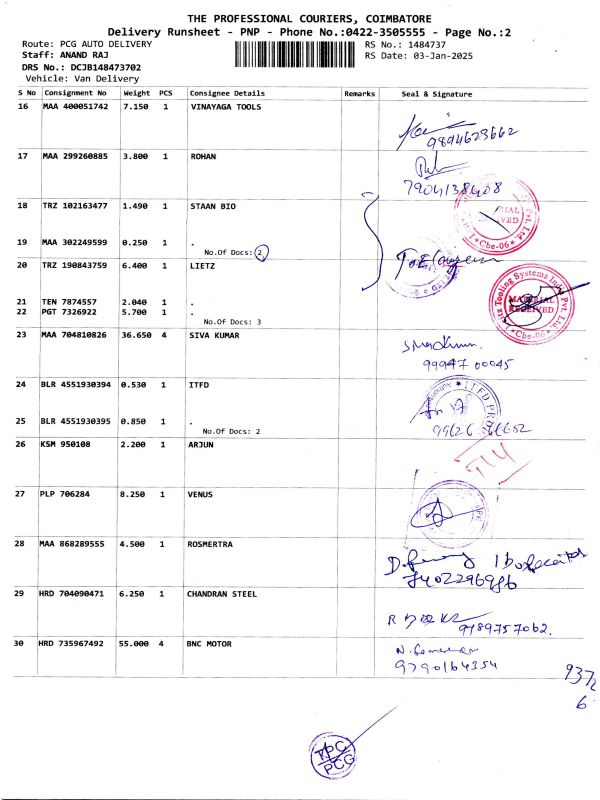 THE PROFESSIONAL COURIERS, COIMBATORE
Delivery Runsheet - PNP - Phone No.:0422-3505555 - Page No.:2
Route: PCG AUTO DELIVERY
RS No.: 1484737
Staff: ANAND RAJ
RS Date: 03-Jan-2025
DRS No.: DCJB148473702
Vehicle: Van Delivery
S No Consignment No Weight PCS Consignee Details Remarks Seal & Signature
16 MAA 400051742 7.150 1 VINAYAGA TOOLS
9894623662
17 MAA 299260885 3.800 1 ROHAN
7904138408
18 TRZ 102163477 1.490 1 STAAN BIO
19 MAA 302249599 0.250 1 .
No.Of Docs: 2
20 TRZ 190843759 6.400 1 LIETZ
Tooling Systems
MATERIAL
RECEIVED
Cbe-06
21 TEN 7874557 2.040 1 .
22 PGT 7326922 5.700 1 .
No.Of Docs: 3
23 MAA 704810826 36.650 4 SIVA KUMAR
99947 00045
24 BLR 4551930394 0.530 1 ITFD
25 BLR 4551930395 0.850 1 .
No.Of Docs: 2
26 KSM 950108 2.200 1 ARJUN
27 PLP 706284 8.250 1 VENUS
28 MAA 868289555 4.500 1 ROSMERTRA
7402296986
29 HRD 704090471 6.250 1 CHANDRAN STEEL
9789757062.
30 HRD 735967492 55.000 4 BNC MOTOR
9790164354
937
6
TPC
PCG